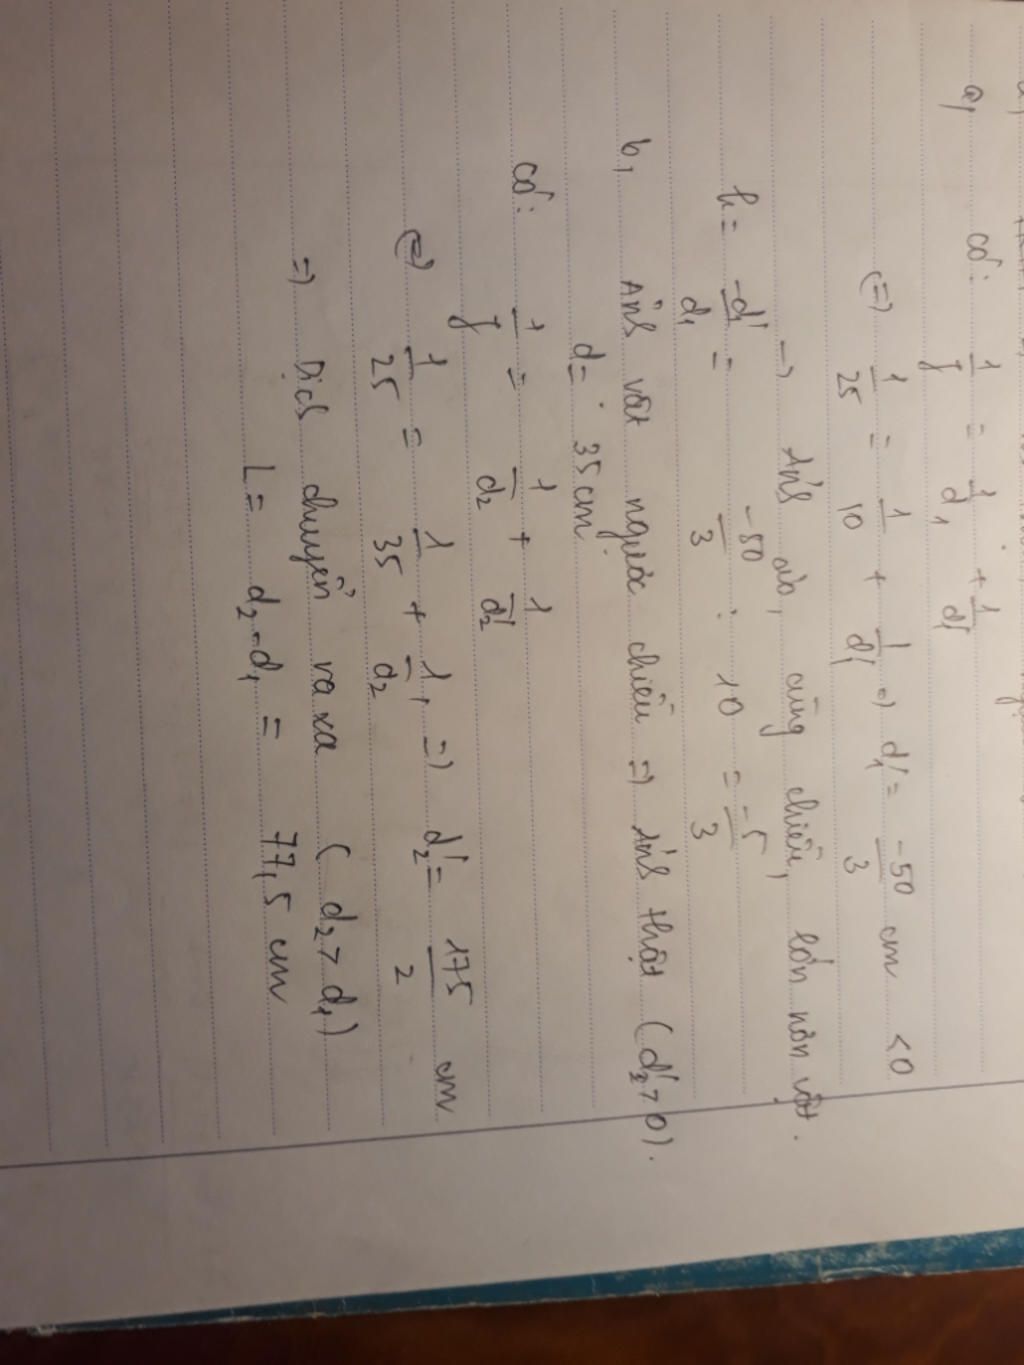 a, có: 1/f = 1/d₁ + 1/d₁'
(=) 1/25 = 1/10 + 1/d₁' => d₁' = -50/3 cm < 0
-> Ảnh ảo, cùng chiều, lớn hơn vật.
k = -d₁'/d₁ = -50/3 : 10 = -5/3
b, Ảnh vật ngược chiều => Ảnh thật (d₂' > 0).
d = 35cm
có: 1/f = 1/d₂ + 1/d₂'
(=) 1/25 = 1/35 + 1/d₂' => d₂' = 175/2 cm
=> Dịch chuyển ra xa (d₂ > d₁)
L = d₂ - d₁ = 77,5 cm